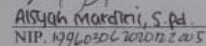 Aisyah Mardini, S.Pd.
NIP. 199603062020122005